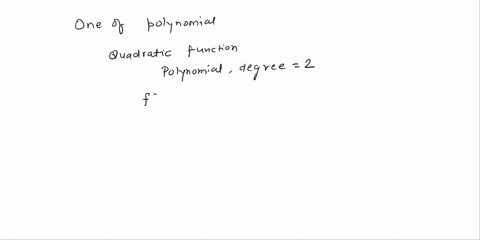 One of polynomial
Quadratic function
Polynomial, degree = 2
f